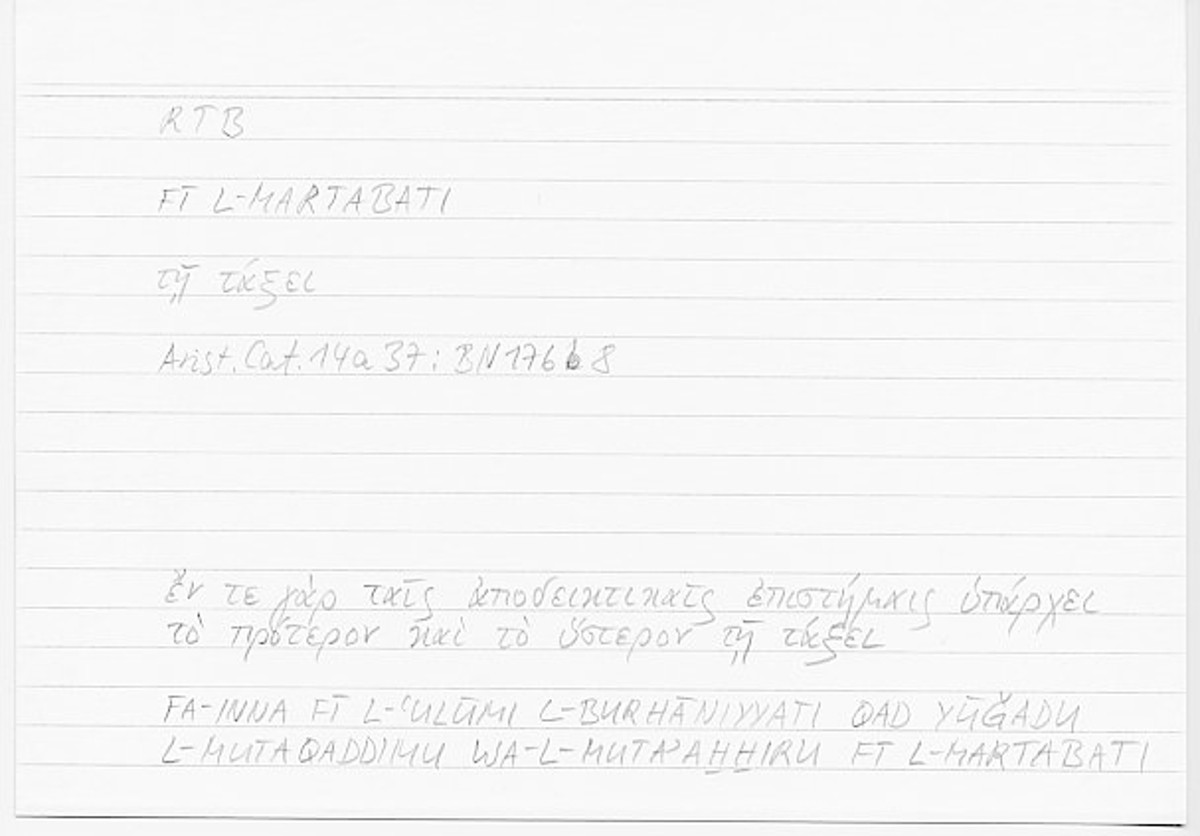 RTB
FĪ L-MARTABATI
τῇ τάξει
Arist. Cat. 14a 37 : BN 176 b 8
ἔν τε γὰρ ταῖς ἀποδεικτικαῖς ἐπιστήμαις ὑπάρχει
τὸ πρότερον καὶ τὸ ὕστερον τῇ τάξει
FA-INNA FĪ L-ʿULŪMI L-BURHĀNIYYATI QAD YŪǦADU
L-MUTAQADDIMU WA-L-MUTAʾAḪḪIRU FĪ L-MARTABATI